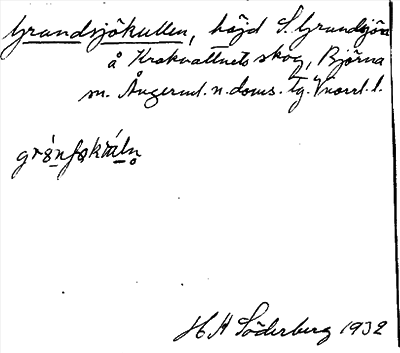 Grundsjökullen, höjd S. Grundsjön
å Krokvattnets skog, Björna
sn. Ångerml. n. doms. tg. Vnorrl. l.
H H Söderberg 1932